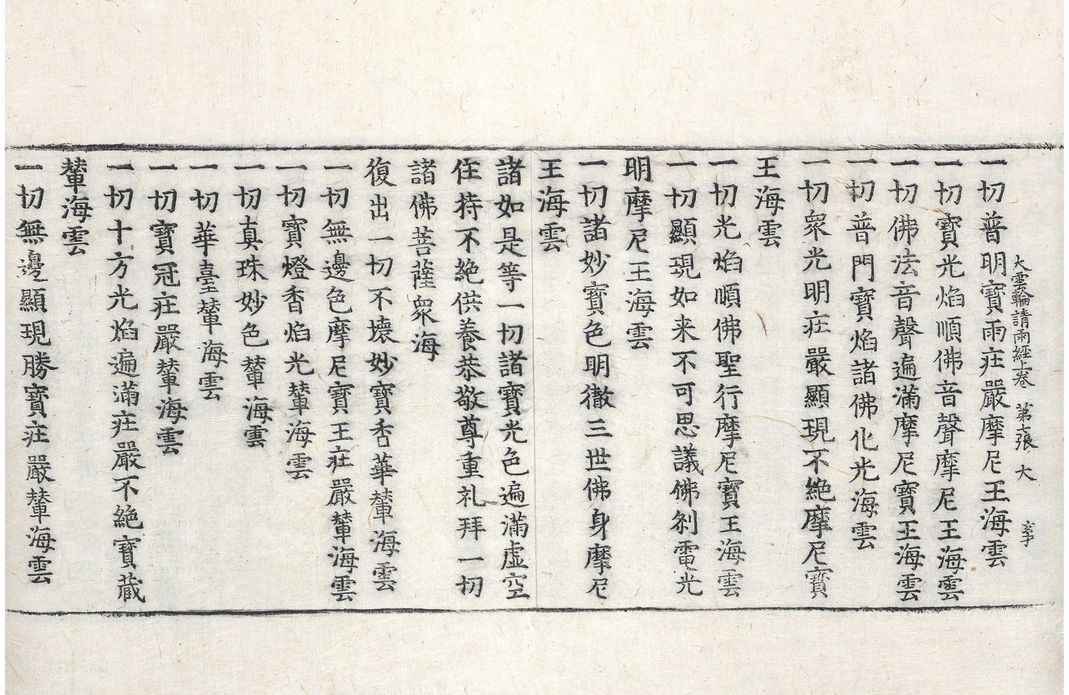 大雲輪請雨經上卷 第七張 大
一切普明寶雨莊嚴摩尼王海雲
一切寶光焰順佛音聲摩尼王海雲
一切佛法音聲遍滿摩尼寶王海雲
一切普門寶焰諸佛化光海雲
一切衆光明莊嚴顯現不絶摩尼寶
王海雲
一切光焰順佛聖行摩尼寶王海雲
一切顯現如来不可思議佛刹電光
明摩尼王海雲
一切諸妙寶色明徹三世佛身摩尼
王海雲
諸如是等一切諸寶光色遍滿虛空
住持不絶供養恭敬尊重礼拜一切
諸佛菩薩衆海
復出一切不壞妙寶香華輦海雲
一切無邊色摩尼寶王莊嚴輦海雲
一切寶燈香焰光輦海雲
一切真珠妙色輦海雲
一切華臺輦海雲
一切寶冠莊嚴輦海雲
一切十方光焰遍滿莊嚴不絶寶蔵
輦海雲
一切無邊顯現勝寶莊嚴輦海雲